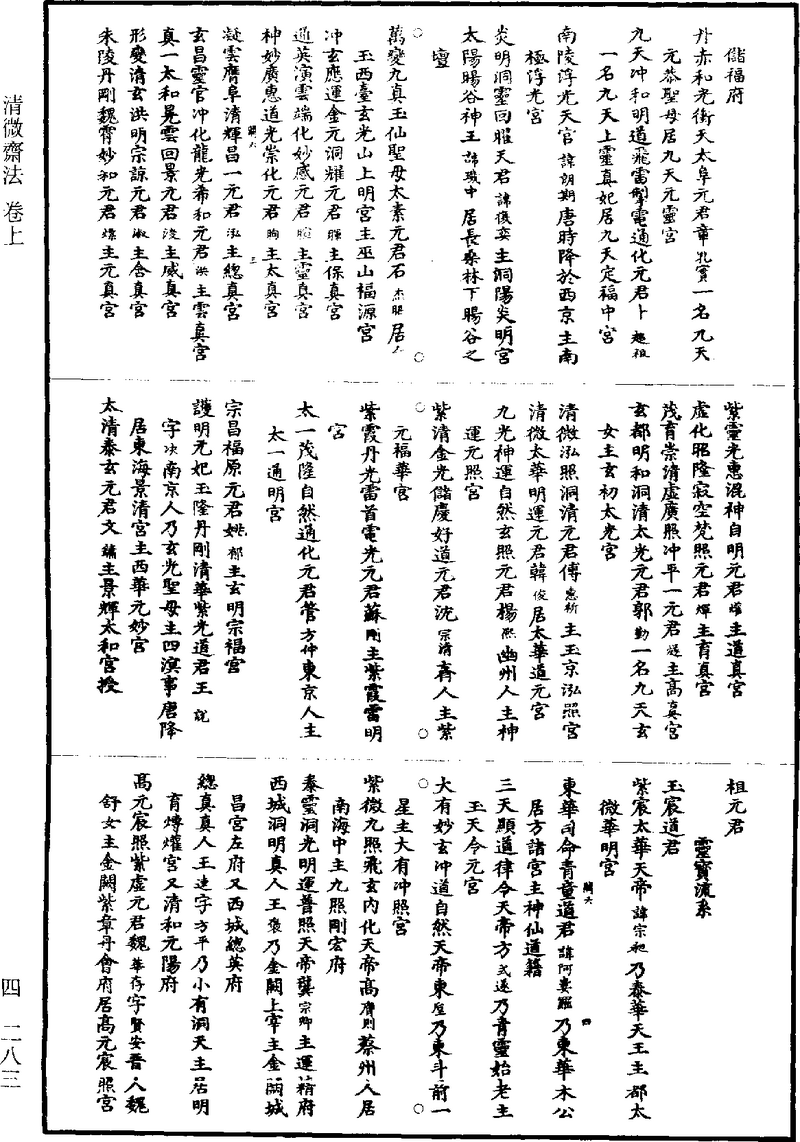 儲福府
丹赤和光衛天太阜元君章乳實一名九天
元恭聖母居九天元靈宮
九天冲和明道飛雷掣電通化元君卜越祖
一名九天上靈真妃居九天定福中宮
南陵浮光天官諱朗期唐時降於西京主南
極浮光宮
炎明洞靈回曜天君諱後奕主洞陽炎明宮
太陽暘谷神王諱職中居長桑林下暘谷之
壇
萬變九真玉仙聖母太素元君石居
玉西臺玄光山上明宮主巫山福源宮
冲玄應運金元洞耀元君暉主保真宮
通英演雲端化妙感元君暄主靈真宮
神妙廣惠道光崇化元君昫主太真宮
凝雲膺阜清輝昌一元君泓主總真宮
玄昌靈官冲化龍光希和元君洪主雲真宮
真一太和晃雲回景元君浚主威真宮
形變清玄洪明宗諒元君淑主含真宮
朱陵丹剛魏霄妙和元君主元真宮
紫靈光惠混神自明元君主道真宮
虛化昭隆寂空梵照元君煇主育真宮
茂育崇清虛廣照冲平一元君主高真宮
玄都明和洞清太光元君郭勤一名九天玄
女主玄初太光宮
清微泓照洞清元君傅主玉京泓照宮
清微太華明運元君韓俊居太華道元宮
九光神運自然玄照元君楊熙幽州人主神
運元照宮
紫清金光儲慶好道元君沈宗清齊人主紫
元福華宮
紫霞丹光雷首電光元君蘇剛主紫霞雷明
宮
太一茂隆自然通化元君管方仲東京人主
太一通明宮
宗昌福原元君姚都主玄明宗福宮
護明元妃玉隆丹剛清華紫光道君王
字決南京人乃玄光聖母主四溟事唐降
居東海景清宮主西華元妙宮
太清泰玄元君文主景輝太和宮授
祖元君
靈寶流系
玉宸道君
紫宸太華天帝諱宗和乃泰華天王主都太
微華明宮
東華司命青童道君諱阿婁羅乃東華木公
居方諸宮主神仙道籍
三天顯道律令天帝方式遂乃青靈始老主
玉天令元宮
大有妙玄冲道自然天帝東乃東斗前一
星主大有冲照宮
紫微九照飛玄内化天帝高膺則蔡州人居
南海中主九照剛宏府
泰靈洞光明運普照天帝龔宗卿主運精府
西城洞明真人王褒乃金闕上宰主金闕城
昌宮左府又西城總英府
總真真人王逹字方平乃小有洞天主居明
育燁燿宮又清和元陽府
高元宸照紫虛元君魏華存字賢安晉人魏
舒女主金闕紫章丹會府居高元宸照宮
清微齋法 卷上
四 二八三